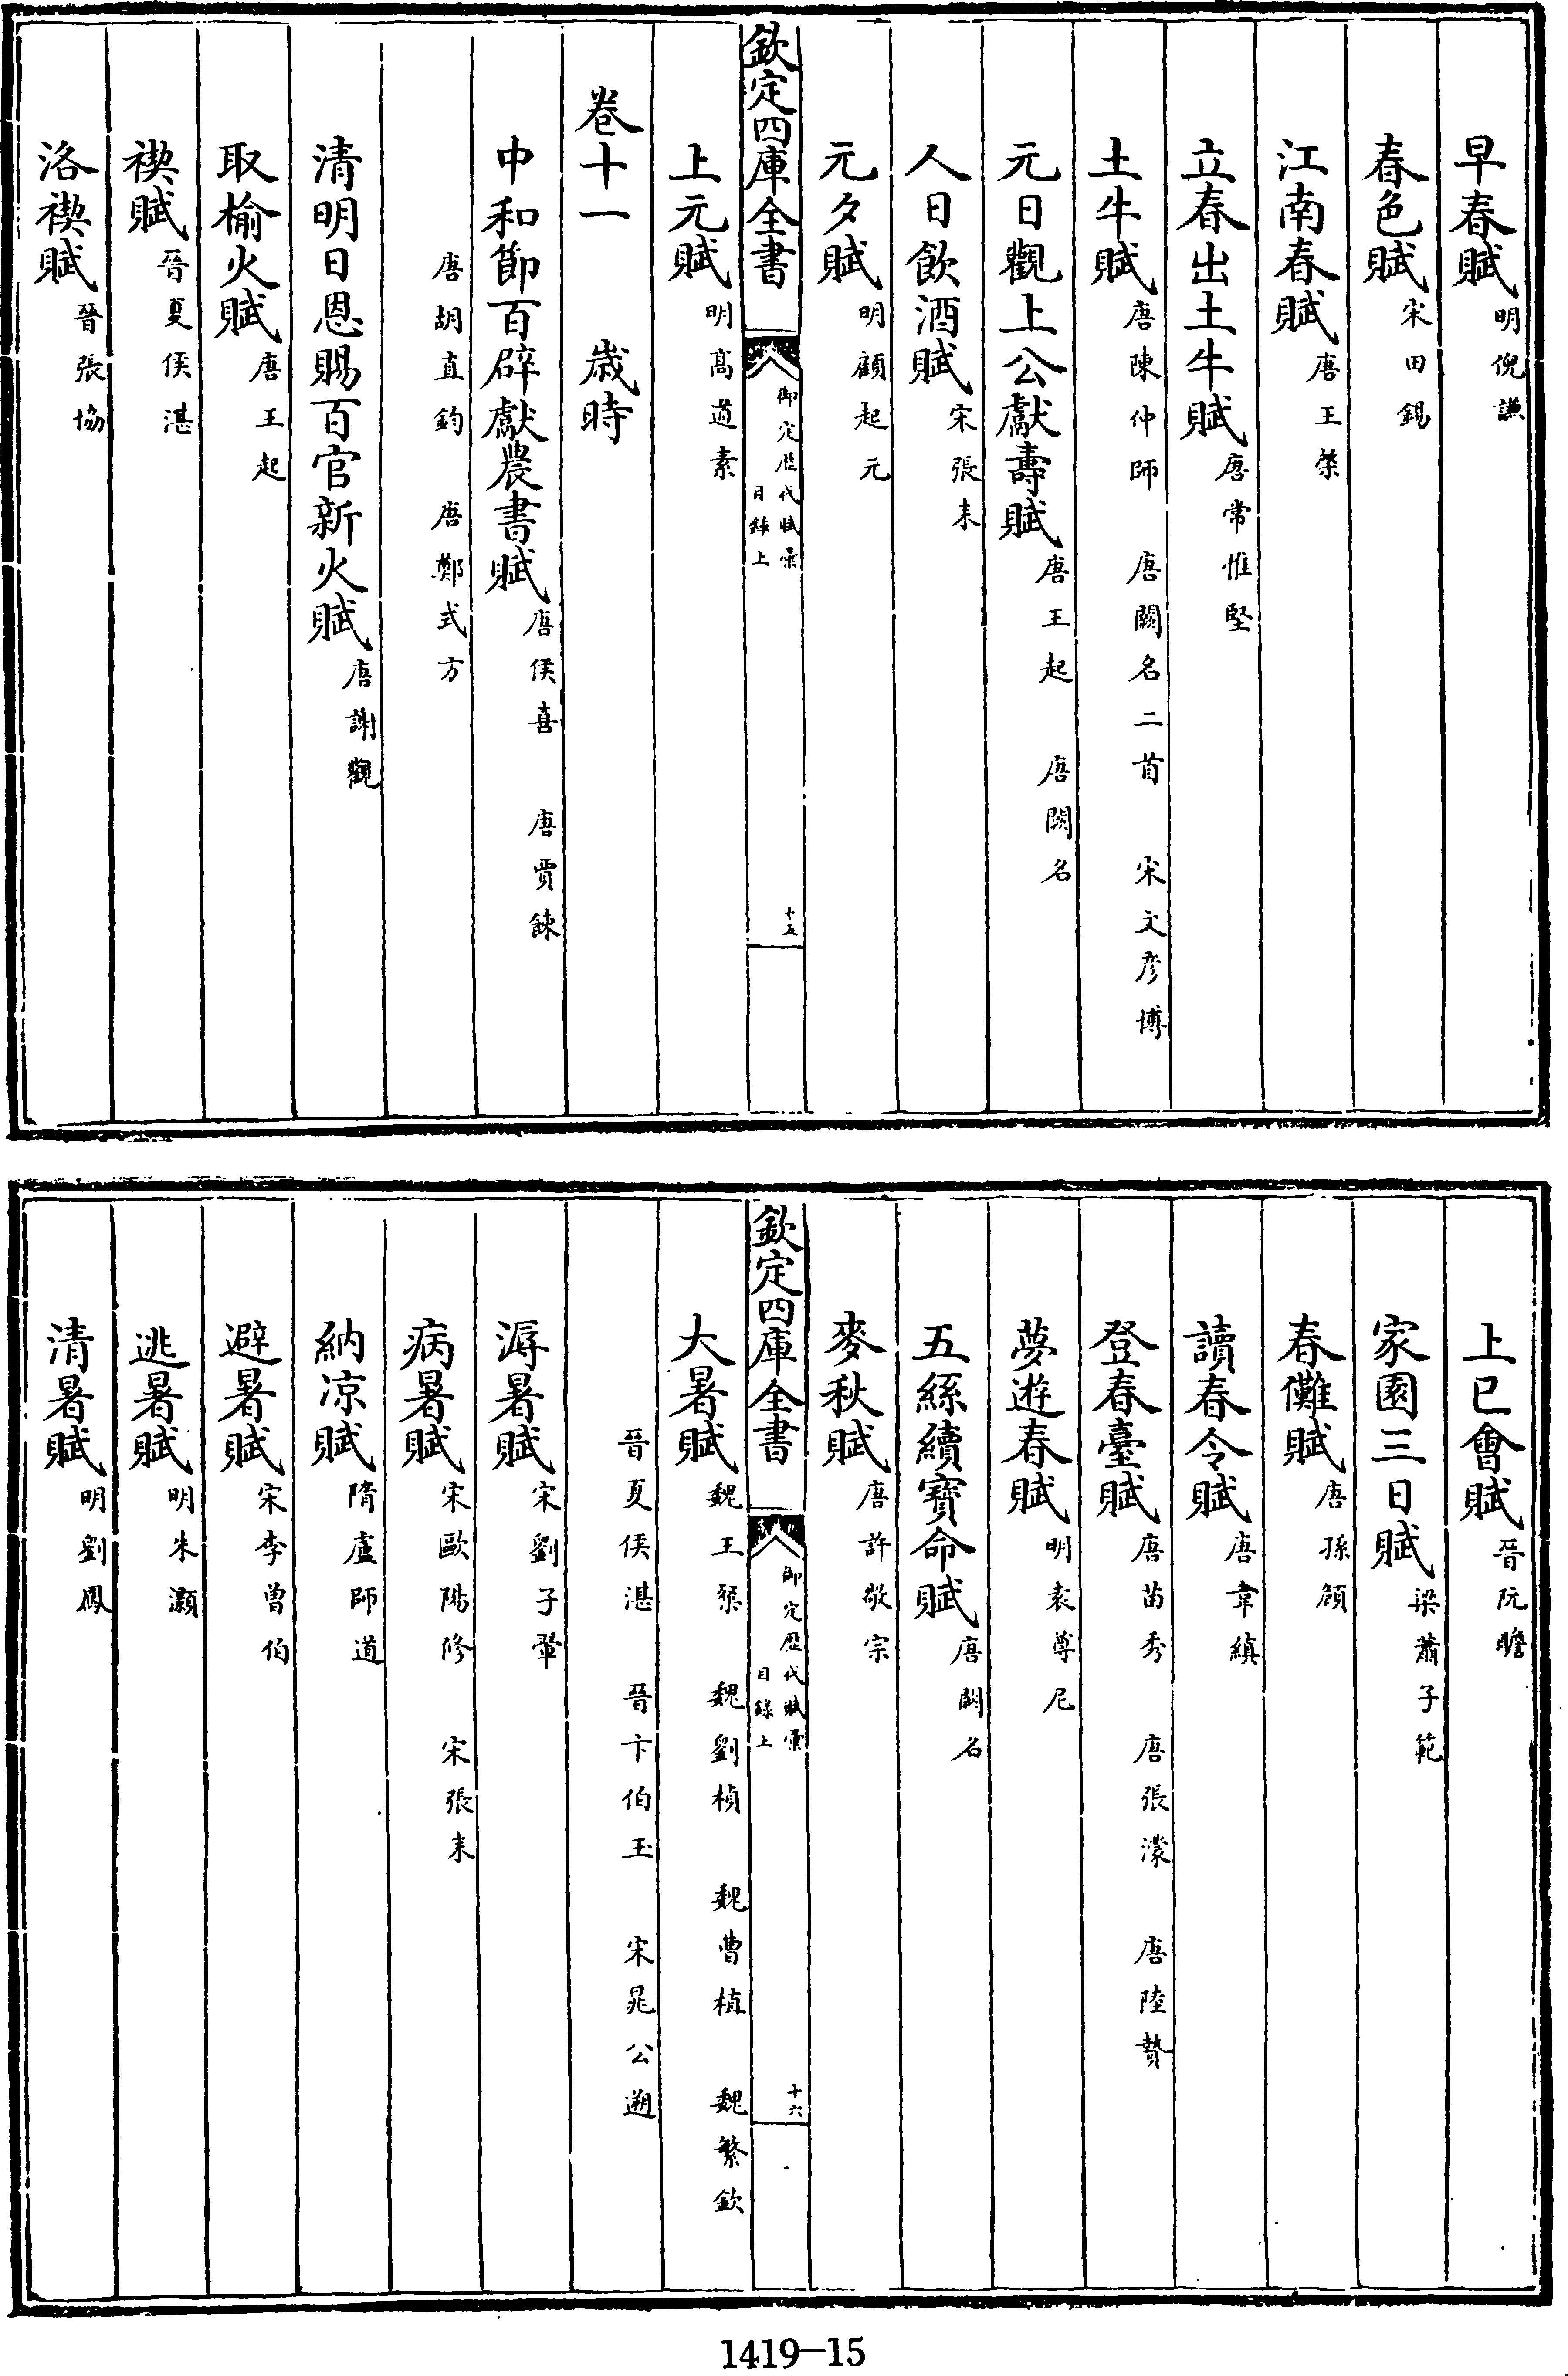 早春賦明倪謙
春色賦宋田錫
江南春賦唐王棨
立春出土牛賦唐常惟堅
土牛賦唐陳仲師　唐闕名二首　宋文彦博
元日觀上公獻壽賦唐王起　唐闕名
人日飲酒賦宋張耒
元夕賦明顧起元
欽定四庫全書
御定歴代賦彙
目録上
十五
上元賦明髙道素
卷十一　歲時
中和節百辟獻農書賦唐侯喜　唐賈餗
唐胡直鈞　唐鄭式方
清明日恩賜百官新火賦唐謝觀
取榆火賦唐王起
禊賦晉夏侯湛
洛禊賦晉張協
上巳會賦晉阮瞻
家園三日賦梁蕭子範
春儺賦唐孫頠
讀春令賦唐韋縝
登春臺賦唐苗秀　唐張濛　唐陸贄
夢遊春賦明袁尊尼
五絲續寶命賦唐闕名
麥秋賦唐許敬宗
欽定四庫全書
御定歴代賦彙
目録上
十六
大暑賦魏王粲　魏劉楨　魏曹植　魏繁欽
晉夏侯湛　晉卞伯玉　宋晁公遡
溽暑賦宋劉子翬
病暑賦宋歐陽修　宋張耒
納凉賦隋盧師道
避暑賦宋李曾伯
逃暑賦明朱灝
清暑賦明劉鳳
1419-15